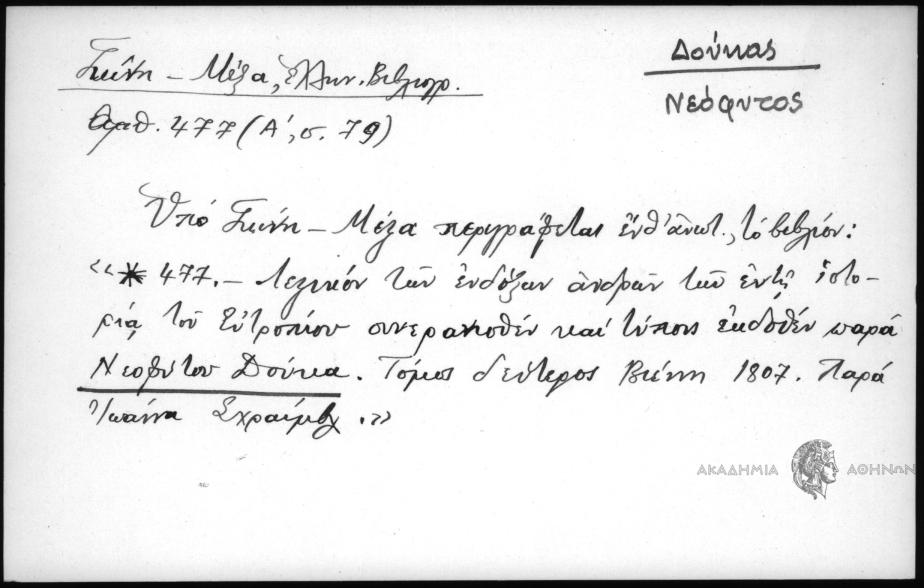 Δούκας
Νεόφυτος
Γκίνη – Μέξα, Ἑλλην. Βιβλιογρ.
Ἀριθ. 477 (Α΄, σ. 79)
Ὑπό Γκίνη – Μέξα περιγράφεται ἔνθ' ἀνωτ., τό βιβλίον:
«* 477. – Λεξικόν τῶν ἐνδόξων ἀνδρῶν τῶν ἐν τῇ ἱστο-
ρίᾳ τοῦ Εὐτροπίου συνερανισθέν καί τύποις ἐκδοθέν παρά
Νεοφύτου Δούκα. Τόμος δεύτερος Βιέννη 1807. Παρά
Ἰωάννῃ Σχραίμβλ.»
ΑΚΑΔΗΜΙΑ ΑΘΗΝΩΝ